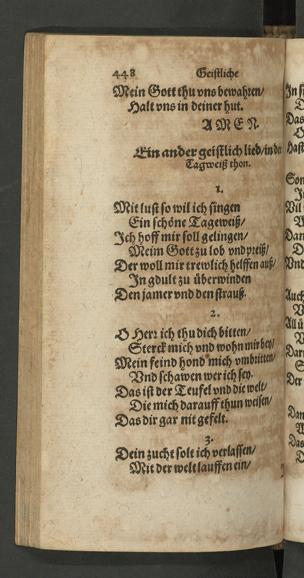 448 Geistliche
Mein Gott thu vns bewahren/
Halt vns in deiner hut.
A M E N.
Ein ander geistlich lied/in der
Tagweiß thon.
1.
Mit lust so wil ich singen
Ein schöne Tageweiß/
Ich hoff mir soll gelingen/
Meim Gott zu lob vnd preiß/
Der woll mir trewlich helffen auß/
In gdult zu überwinden
Den jamer vnd den strauß.
2.
O Herr ich thu dich bitten/
Sterck mich vnd wohn mir bey/
Mein feind hond mich vmbritten/
Vnd schawen wer ich sey.
Das ist der Teufel vnd die welt/
Die mich darauff thun weisen/
Das dir gar nit gefelt.
3.
Dein zucht solt ich verlassen/
Mit der welt lauffen ein/